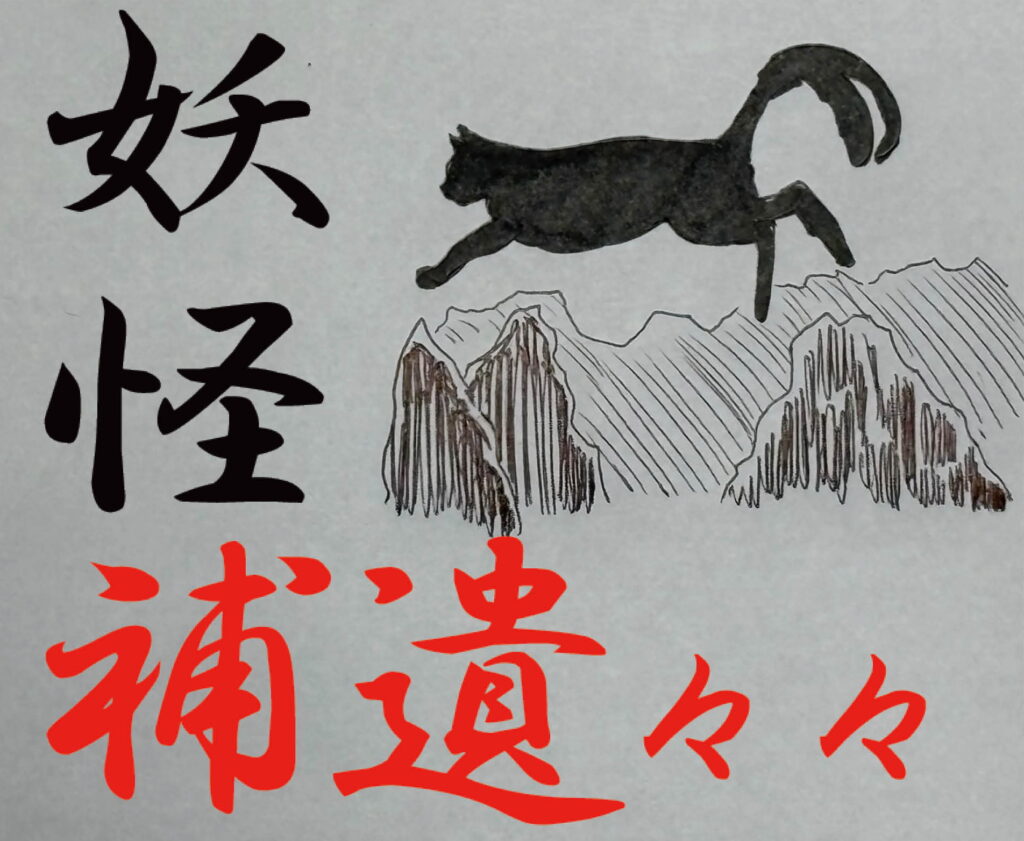 妖
怪
補遺々々